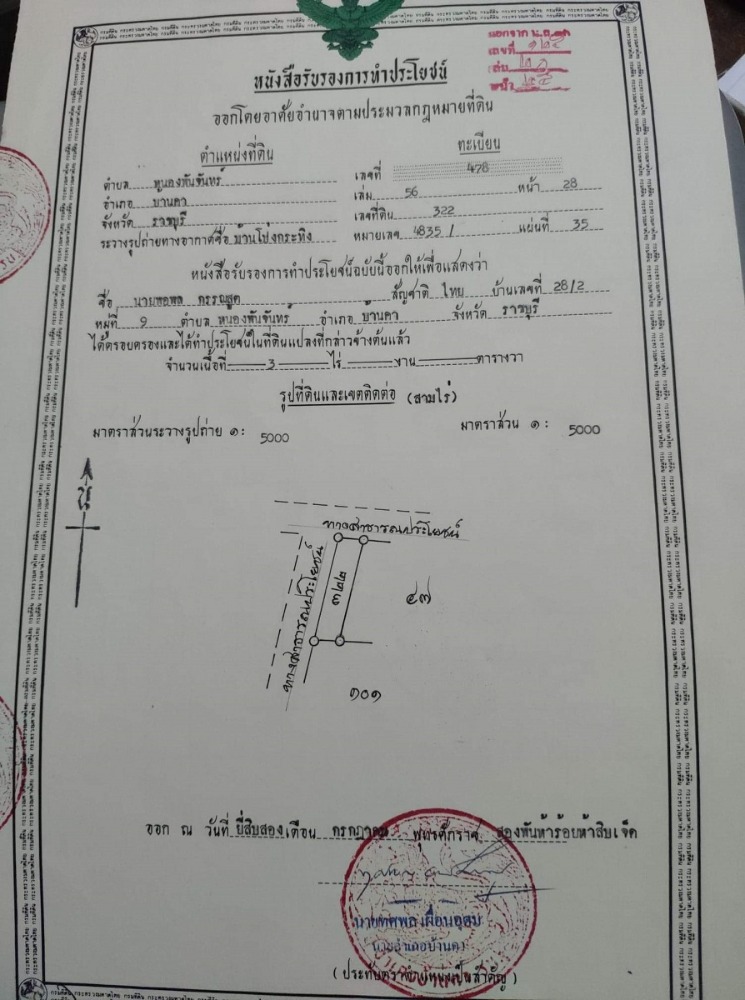 ออกจาก น.ส.๓ก
เลขที่
เล่ม
หน้า
หนังสือรับรองการทำประโยชน์
ออกโดยอาศัยอำนาจตามประมวลกฎหมายที่ดิน
ตำแหน่งที่ดิน ทะเบียน
ตำบล หนองพันจันทร์ เลขที่ 478
อำเภอ บานคา เล่ม 56 หน้า 28
จังหวัด ราชบุรี เลขที่ดิน 322
ระวางรูปถ่ายทางอากาศชื่อ บ้านโป่งกระทิง หมายเลข 4835 I แผ่นที่ 35
หนังสือรับรองการทำประโยชน์ฉบับนี้ออกให้เพื่อแสดงว่า
ชื่อ สัญชาติ ไทย บ้านเลขที่ 28/2
หมู่ที่ 9 ตำบล หนองพันจันทร์ อำเภอ บานคา จังหวัด ราชบุรี
ได้ครอบครองและได้ทำประโยชน์ในที่ดินแปลงที่กล่าวข้างต้นแล้ว
จำนวนเนื้อที่ 3 ไร่ งาน ตารางวา
รูปที่ดินและเขตติดต่อ (สามไร่)
มาตราส่วนระวางรูปถ่าย ๑: 5000 มาตราส่วน ๑: 5000
ทางสาธารณประโยชน์
ทางสาธารณประโยชน์
๓๒๒
๔๗
๑๐๑
ออก ณ วันที่ ยี่สิบสอง เดือน กรกฎาคม พุทธศักราช สองพันห้าร้อยห้าสิบเจ็ด
นายอำเภอบ้านคา
(ประทับตราประจำตำแหน่งเป็นสำคัญ)